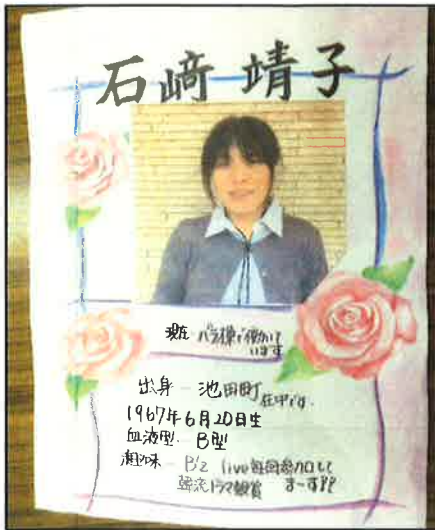 石﨑 靖子
現在 バラ棟で働いて
います
出身 - 池田町 在中です。
1967年6月20日生
血液型. B型
趣味 - B'z live毎回参加して
韓流ドラマ観賞 まーす!!